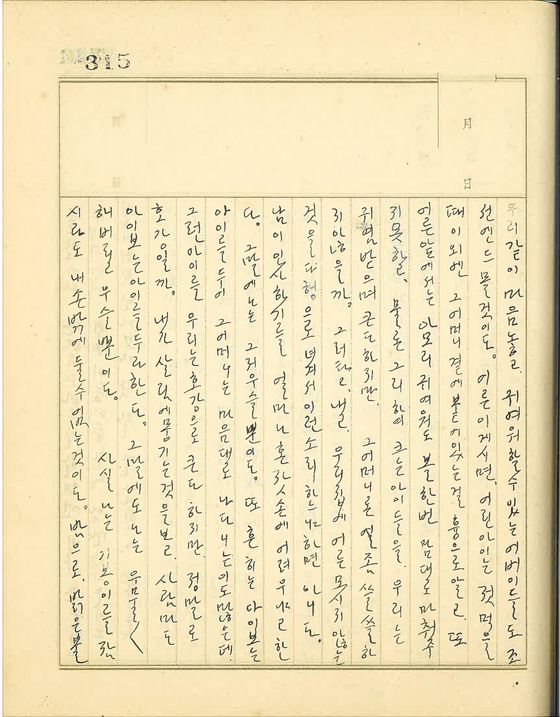 315
月
日
우리같이 마음놓고, 귀여워할 수 있는 어버이들도 조
선엔 드물것이다. 어른이 계시면, 어린아이는 젖먹을
때 이외엔 그 어머니 곁에 붙어있는 걸 흉으로 알고. 또
어른 앞에서는 아모리 귀여워도 볼 한번 맘대로 마춰주
지 못하고. 물론 그리하여 크는 아이들을 우리는
귀염받으며 큰다 하지만, 그 어머니는 열종 쓸쓸하
지 않을까. 그러타고, 내 우리집에 어른 모시지 않는
것을 다형으로 녁겨서 이런 소리 하느냐 하면 아니다.
남이 인사하기를 얼마나 혼잣손에 어려우냐고 한
다. 그 말에 나는 그저 우슬뿐이다. 또 흔히는 아이보는
아이를 두어 그 어머니는 마음대로 나다니는 이도 많은데.
그런 아이를 우리는 호강으로 큰다 하지만 정말로
호강일까. 내가 살림에 뭉기는 것을 보고. 사람마도
아이보는 아이를 두라 한다. 그 말에도 나는 우물
해버릴 우슬뿐이다. 사실 나는 기봉이를 잠
시라도 내 손밖에 둘 수 없는 것이다. 밤으로. 맑은물